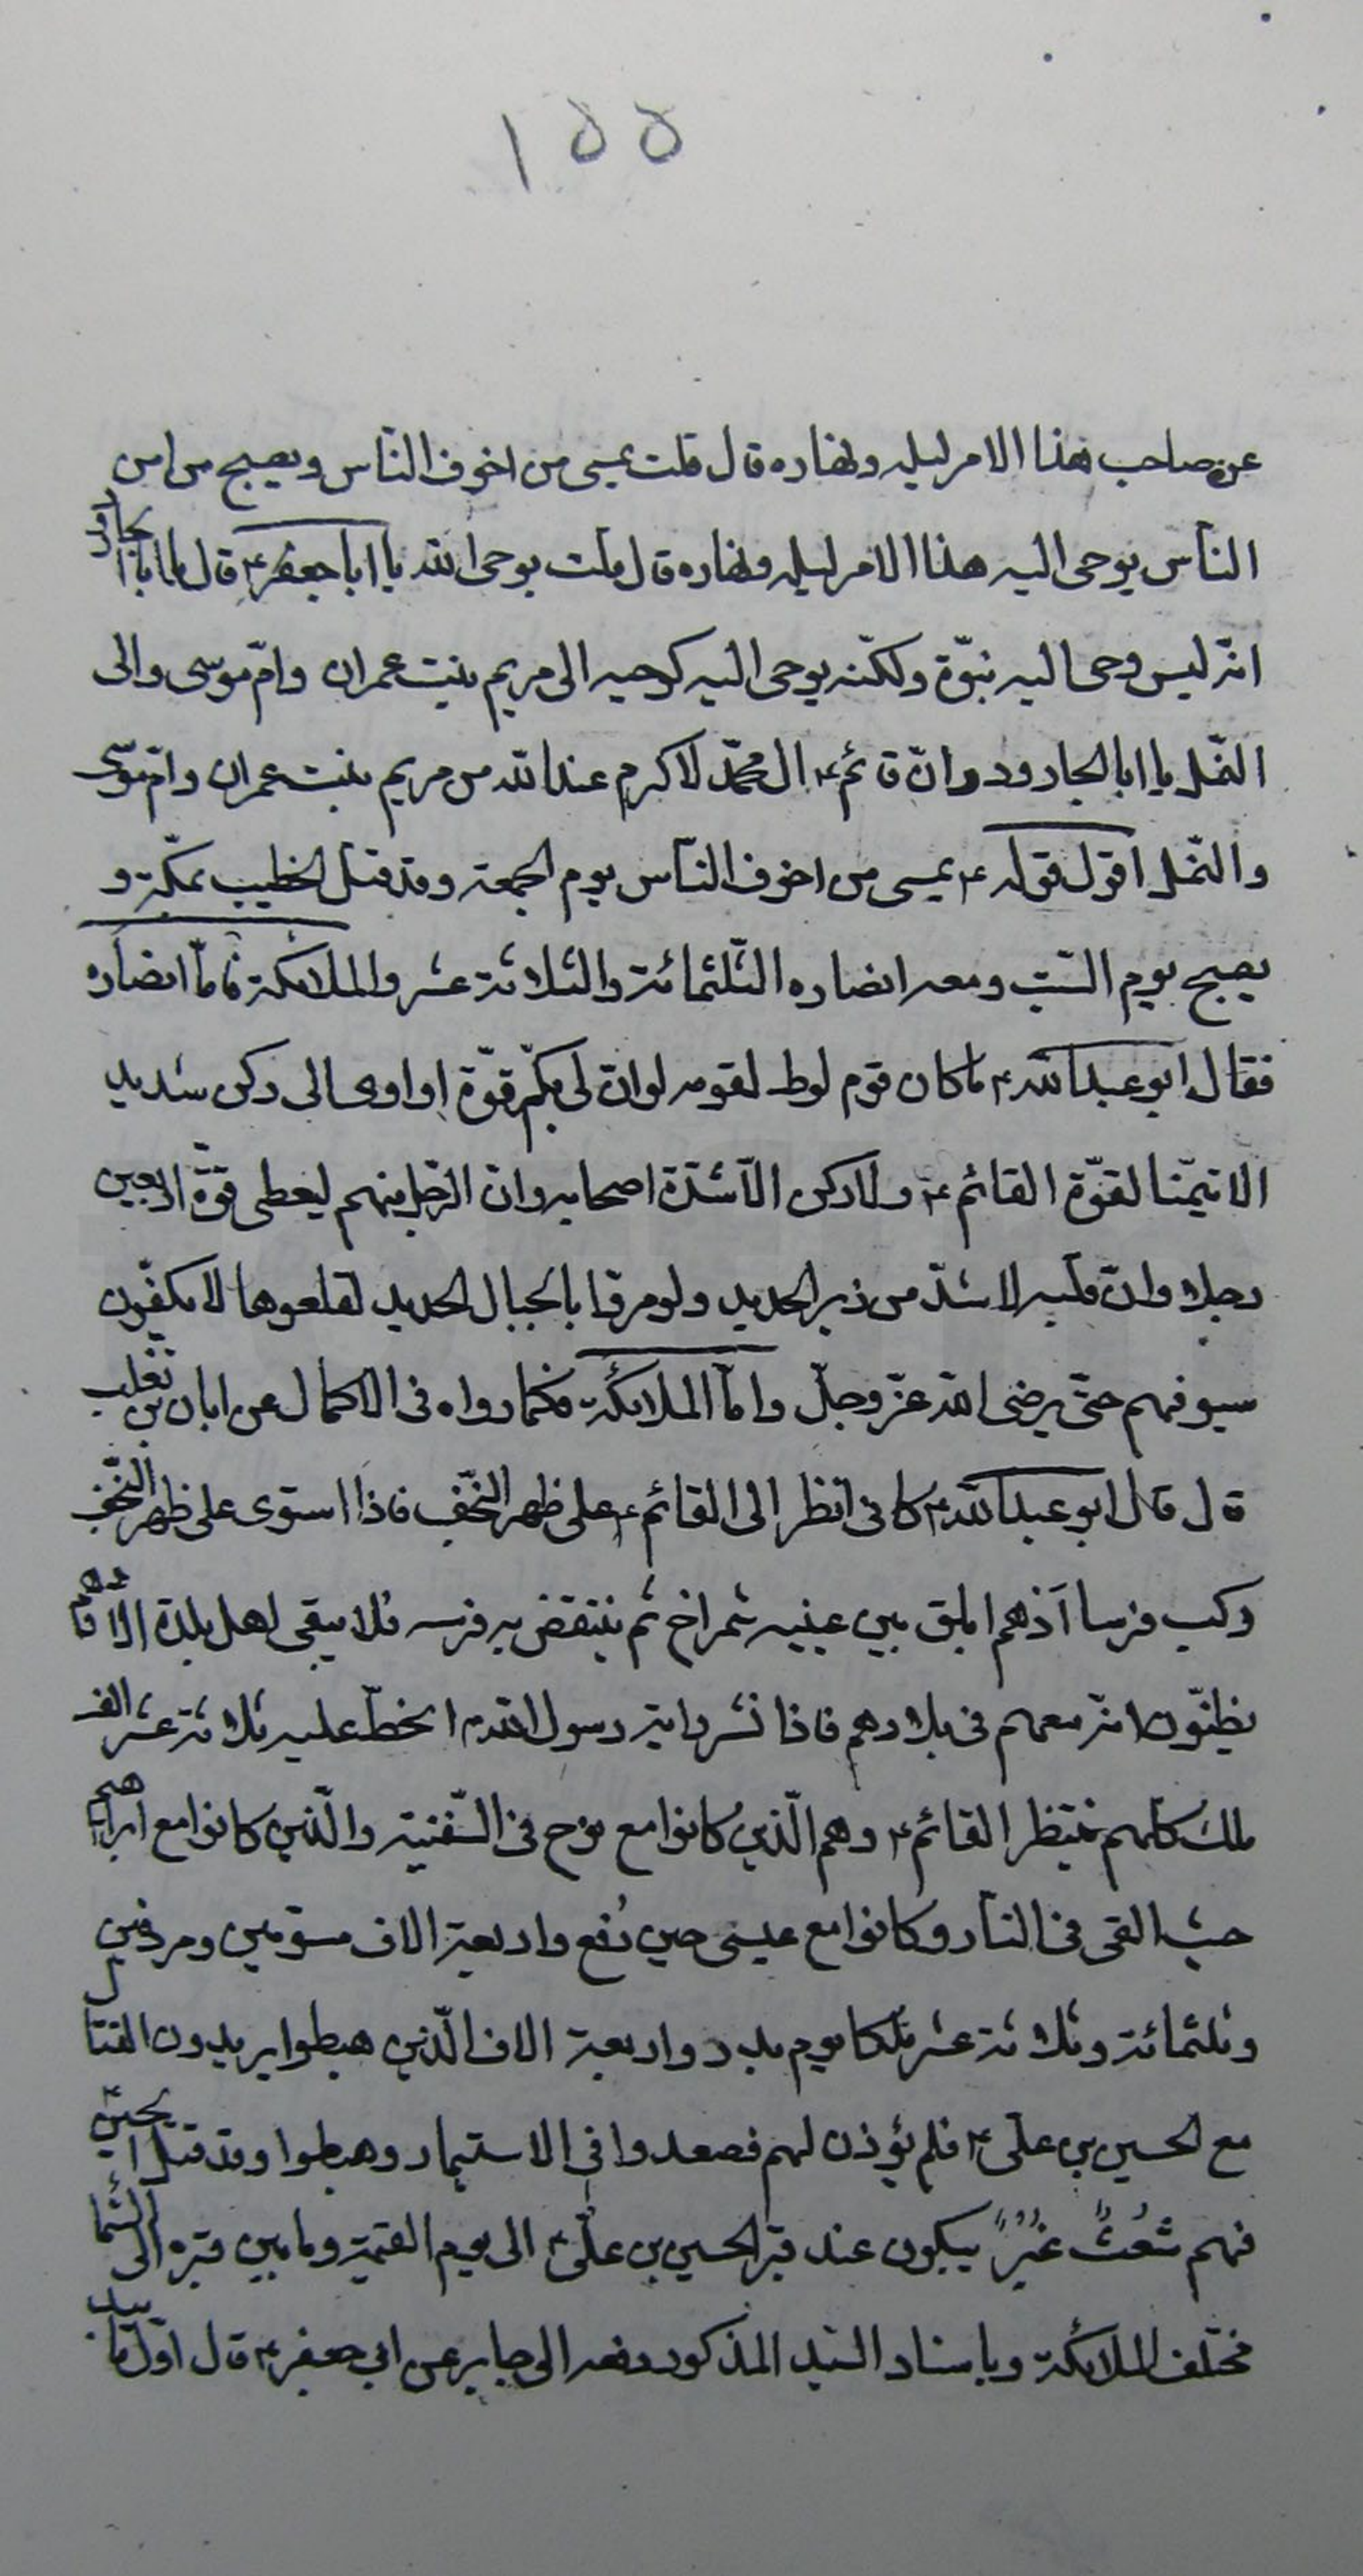 ١٥٥
عن صاحب هذا الامر ليله ونهاره قال قلت يمسى من اخوف الناس ويصبح من امن
الناس يوحى اليه هذا الامر ليله ونهاره قال قلت يوحى الله يا ابا جعفر ع قال يا ابا جارود
انه ليس وحى اليه نبوّة ولكنّه يوحى اليه كوحيه الى مريم بنت عمران وامّ موسى والى
النحل يا ابا الجارود وانّ قائم ع ال محمّد لاكرم عند الله من مريم بنت عمران وامّ موسى
والنحل اقول قوله ع يمسى من اخوف النّاس يوم الجمعة وقد قتل الخطيب بمكّة و
يصبح يوم السّبت ومعه انصاره الثّلثمائة والثلاثة عشر والملائكة فامّا انصاره
فقال ابو عبد الله ع ما كان قوم لوط لقومه لو ان لى بكم قوّة او اوى الى ركن شديد
الا تيمّنا لقوّة القائم ع ولا ركن الّا شدّة اصحابه وان الرّجل منهم ليعطى قوّة اربعين
رجلا وانّ قلبه لاشدّ من زبر الحديد ولو مرّوا بالجبال الحديد لقلعوها لا يكفّون
سيوفهم حتّى يرضى الله عزّ وجلّ وامّا الملائكة فكما رواه فى الاكمال عن ابان بن تغلب
قال قال ابو عبد الله ع كانى انظر الى القائم ع على ظهر النّجف فاذا استوى على ظهر النّجف
ركب فرسا ادهم ابلق بين عينيه شمراخ ثم ينتفض به فرسه فلا يبقى اهل بلدة الّا وهم
يظنّون انّه معهم فى بلادهم فاذا نشر راية رسول الله ص انحطّ عليه ثلاثة عشر الف
ملك كلهم ينتظر القائم ع وهم الّذين كانوا مع نوح فى السّفينة والّذين كانوا مع ابراهيم
حيث القى فى النار وكانوا مع عيسى حين رُفع واربعة الاف مسوّمين ومردفين
وثلثمائة وثلاثة عشر ملكا يوم بدر واربعة الاف الّذين هبطوا يريدون القتال
مع الحسين بن على ع فلم يؤذن لهم فصعدوا فى الاستيمار وهبطوا وقد قتل الحسين
فهم شُعثٌ غبرٌ يبكون عند قبر الحسين بن علىّ ع الى يوم القيمة وما بين قبره الى السّما
مختلف الملائكة وباسناد السّيد المذكور رفعه الى جابر عن ابى جعفر ع قال اوّل ما